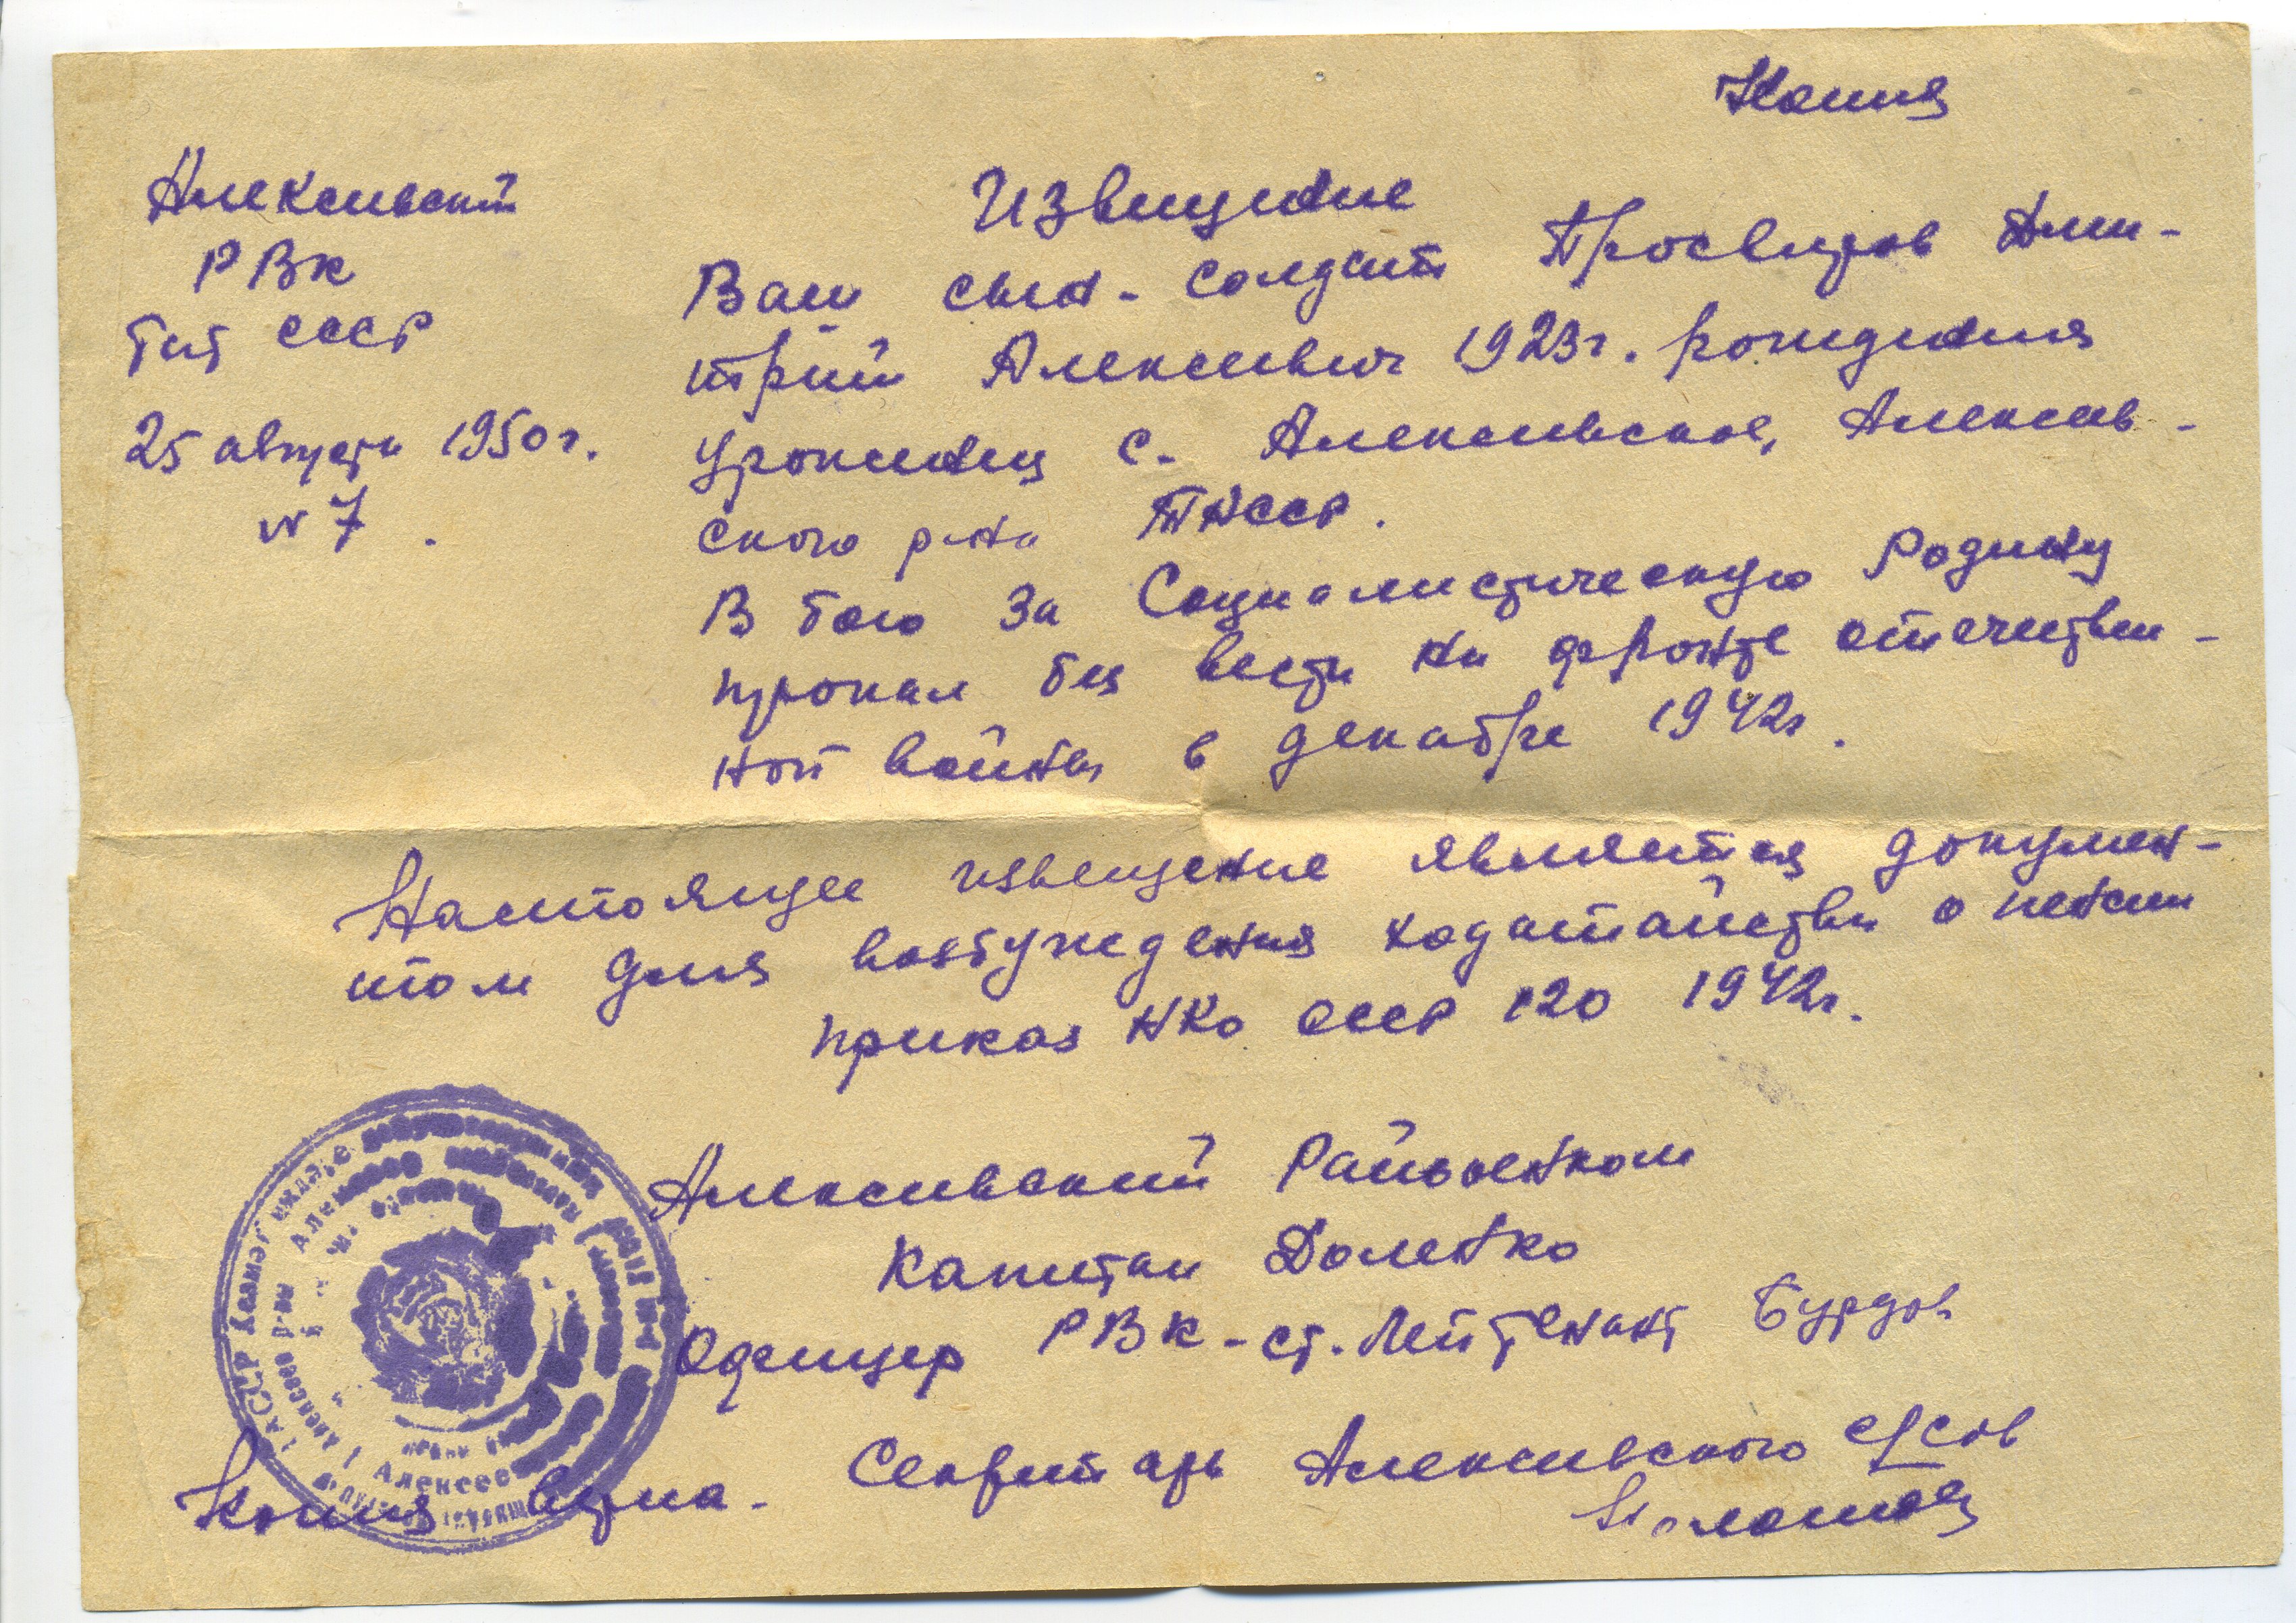 Копия
Алексеевский
РВК
Тат СССР
25 августа 1950 г.
N 7.
Извещение
Ваш сын - солдат Просвиров Дми-
трий Алексеевич 1923 г. рождения
Уроженец с. Алексеевское, Алексеев-
ского р-на ТАССР.
В бою за Социалистическую Родину
пропал без вести на фронте отечествен-
ной войны в декабре 1942 г.
Настоящее извещение является докумен-
том для возбуждения ходатайства о пенсии
приказ НКО СССР 120 1942 г.
Алексеевский Райвоенком
Капитан Доленко
Офицер РВК - ст. Лейтенант Бурдов
Копия верна. Секретарь Алексеевского